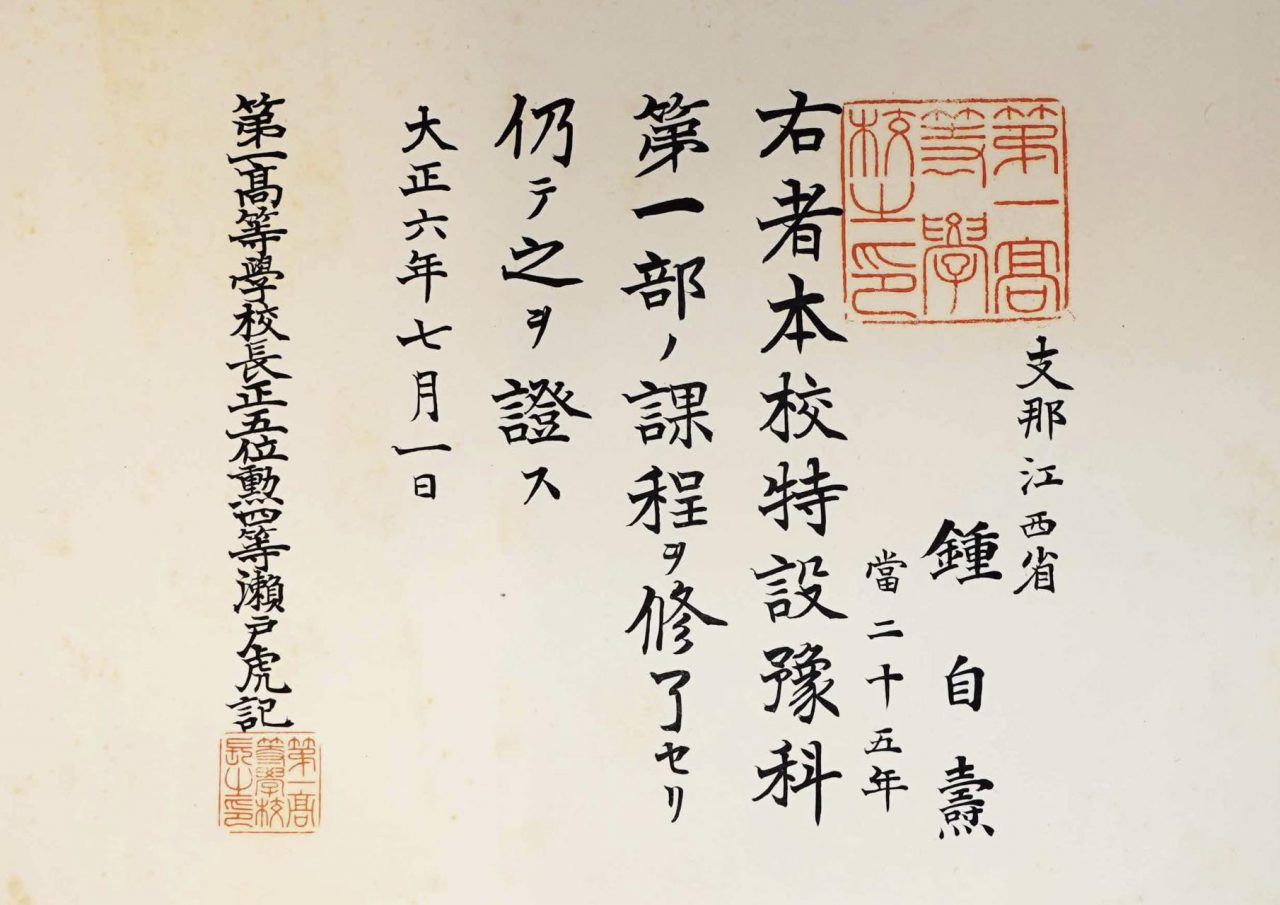 第一高
等學
校之印
支那江西省
鍾自燾
當二十五年
右者本校特設豫科
第一部ノ課程ヲ修了セリ
仍テ之ヲ證ス
大正六年七月一日
第一髙等學校長正五位勲四等瀨戸虎記
第一高
等學校
長之印